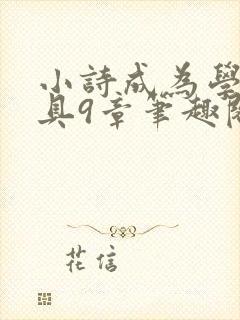 小詩成為學
具9章筆趣
花信